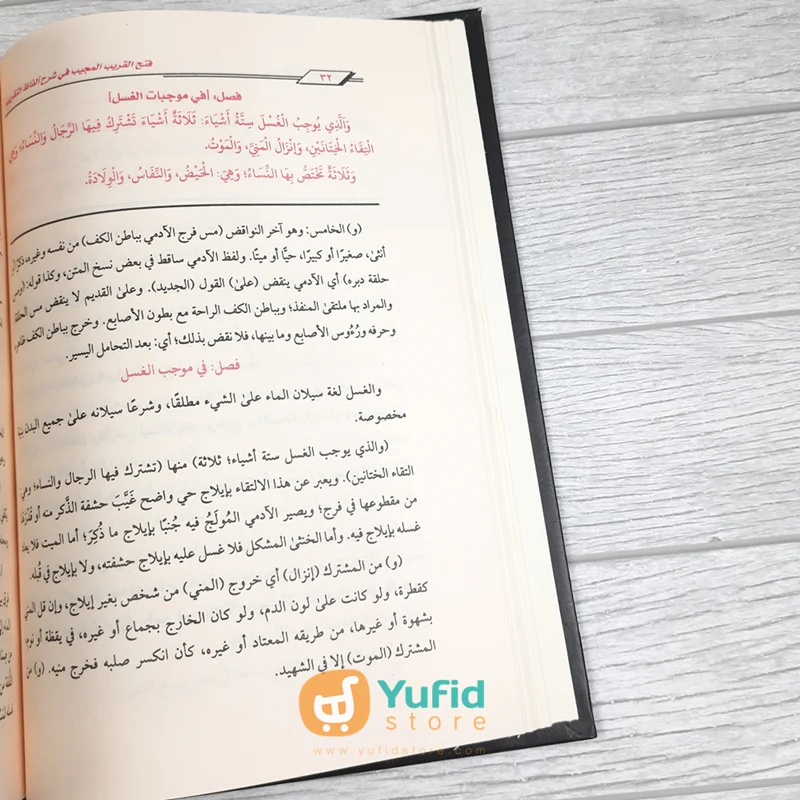 فتح القريب المجيب في شرح ألفاظ التقريب
٣٢
فصل: [في موجبات الغسل]
وَالَّذِي يُوجِبُ الْغُسْلَ سِتَّةُ أَشْيَاءَ: ثَلَاثَةُ أَشْيَاءَ تَشْتَرِكُ فِيهَا الرِّجَالُ وَالنِّسَاءُ؛ وَهِيَ
الْتِقَاءُ الْخِتَانَيْنِ، وَإِنْزَالُ الْمَنِيِّ، وَالْمَوْتُ.
وَثَلَاثَةٌ تَخْتَصُّ بِهَا النِّسَاءُ؛ وَهِيَ: الْحَيْضُ، وَالنِّفَاسُ، وَالْوِلَادَةُ.
(و) الخامس: وهو آخر النواقض (مس فرج الآدمي بباطن الكف) من نفسه وغيره، ذكرًا أو
أنثى، صغيرًا أو كبيرًا، حيًّا أو ميتًا. ولفظ الآدمي ساقط في بعض نسخ المتن، وكذا قوله: (ومس
حلقة دبره) أي الآدمي ينقض (على) القول (الجديد). وعلى القديم لا ينقض مس الحلقة
والمراد بها ملتقى المنفذ؛ وبباطن الكف الراحة مع بطون الأصابع. وخرج بباطن الكف ظاهره
وحرفه ورُءُوس الأصابع وما بينها، فلا نقض بذلك؛ أي: بعد التحامل اليسير.
فصل: في موجب الغسل
والغسل لغة سيلان الماء على الشيء مطلقًا، وشرعًا سيلانه على جميع البدن بنية
مخصوصة.
(والذي يوجب الغسل ستة أشياء؛ ثلاثة) منها (تشترك فيها الرجال والنساء؛ وهي
التقاء الختانين). ويعبر عن هذا الالتقاء بإيلاج حي واضح غَيَّبَ حشفة الذَّكر منه أو قدْرَها
من مقطوعها في فرج؛ ويصير الآدمي المُولَجُ فيه جُنبًا بإيلاج ما ذُكِرَ؛ أما الميت فلا يعاد
غسله بإيلاج فيه. وأما الخنثى المشكل فلا غسل عليه بإيلاج حشفته، ولا بإيلاج في قُبله.
(و) من المشترك (إنزال) أي خروج (المني) من شخص بغير إيلاج، وإن قل المني
كقطرة، ولو كانت على لون الدم، ولو كان الخارج بجماع أو غيره، في يقظة أو نوم
بشهوة أو غيرها، من طريقه المعتاد أو غيره، كأن انكسر صلبه فخرج منيه. (و) من
المشترك (الموت) إلا في الشهيد.
Yufid
store
www.yufidstore.com